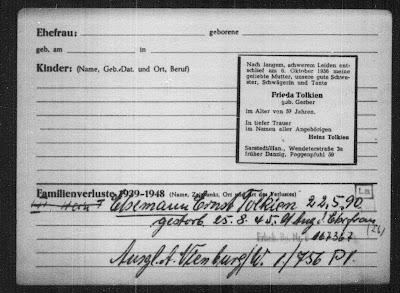 Ehefrau: geborene
geb. am in
Kinder: (Name, Geb.-Dat. und Ort, Beruf)
Nach langem, schwerem Leiden ent-
schlief am 6. Oktober 1956 meine
geliebte Mutter, unsere gute Schwe-
ster, Schwägerin und Tante
Frieda Tolkien
geb. Gerber
im Alter von 59 Jahren.
In tiefer Trauer
im Namen aller Angehörigen
Heinz Tolkien
Sarstedt/Han., Wendeterstraße 3a
früher Danzig, Poggenpfuhl 59
Familienverluste 1939-1948 (Name, Zeitpunkt, Ort und Art des Verlustes)
Ehemann Ernst Tolkien 22.5.90
gestorb. 25.8.45. Ang. d. Ehefrau
067367
Ausgl. A. /W. 1/756